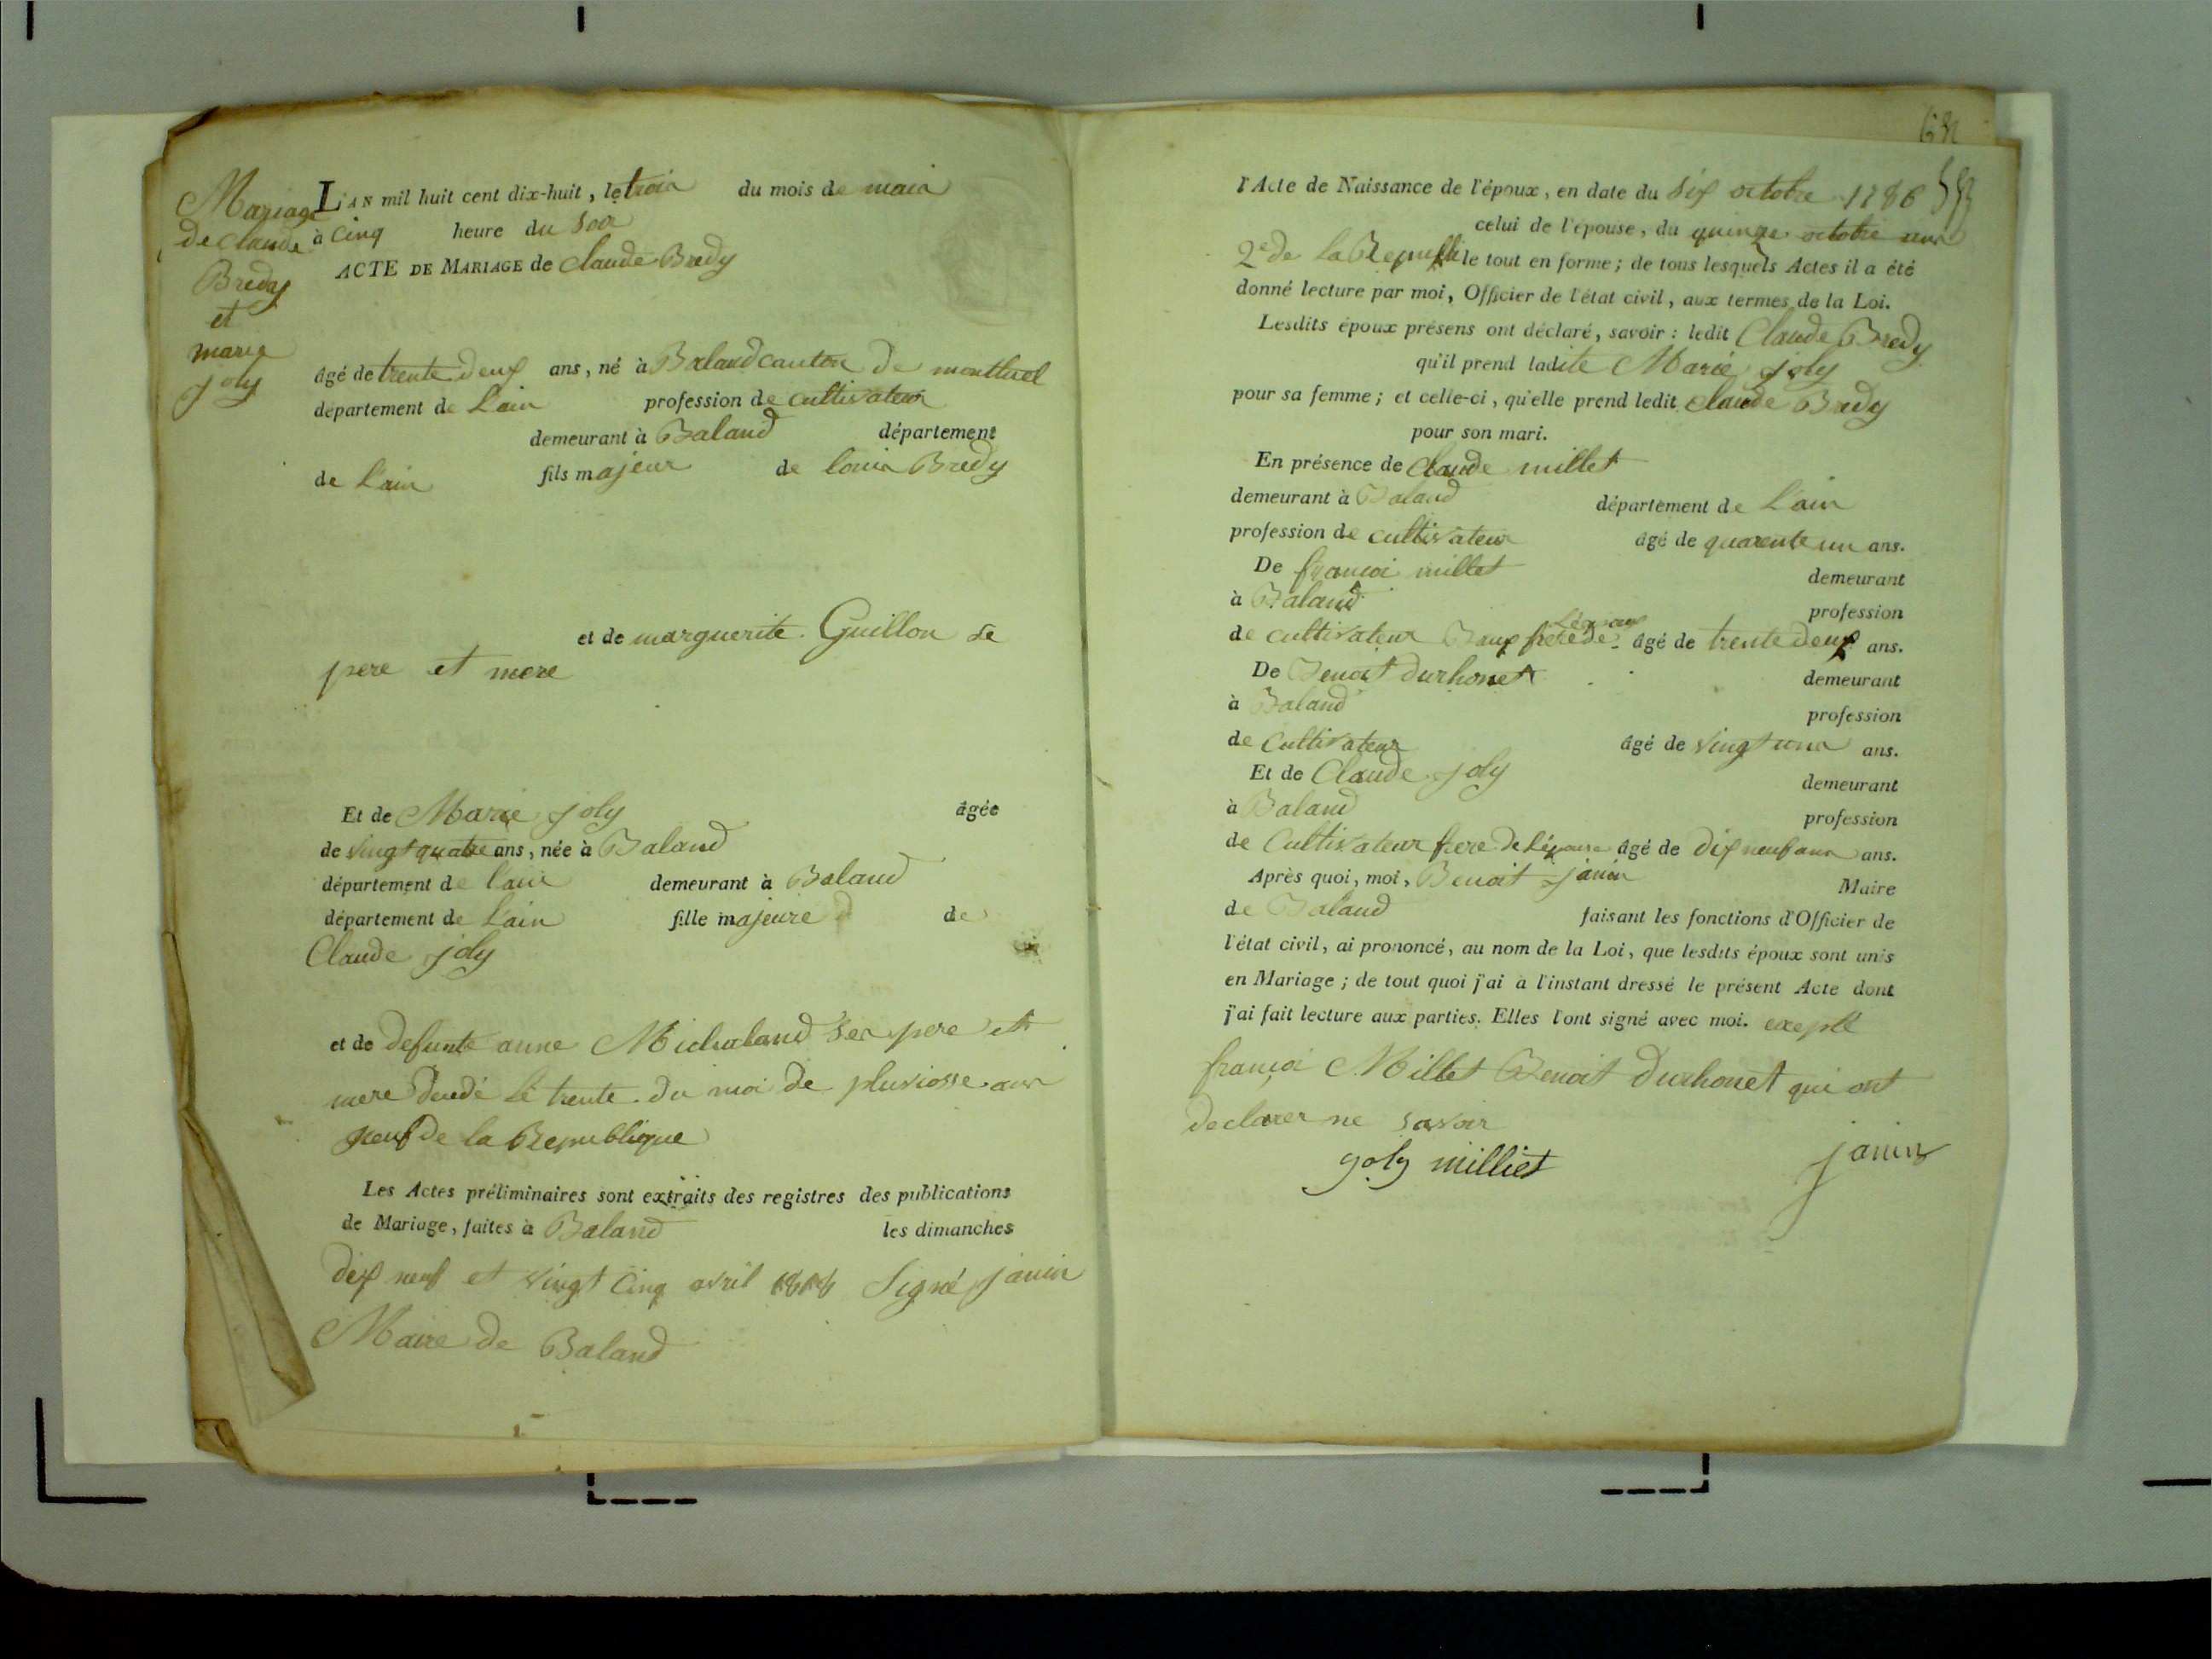 Mariage
de claude
Bredy
et
marie
joly
L'AN mil huit cent dix-huit, le trois du mois de mais
à cinq heure du soir
ACTE DE MARIAGE de claude Bredy
âgé de trente deux ans, né à Baland canton de montluel
département de L'ain profession de cultivateur
demeurant à Baland département
de L'ain fils majeur de louis Bredy
et de marguerite Guillon se
pere et mere
Et de Marie joly âgée
de vingt quatre ans, née à Baland
département de l'ain demeurant à Baland
département de L'ain fille majeure de
Claude joly
et de defunte anne Michaland ses pere et
mere decedé le trente du moi de pluviosse ans
neuf de la Republique
Les Actes préliminaires sont extraits des registres des publications
de Mariage, faites à Baland les dimanches
dix neuf et vingt cinq avril 1818 Signé janin
Maire de Baland
l'Acte de Naissance de l'époux, en date du six octobre 1786
celui de l'épouse, du quinze octobre ans
2e de la Republi le tout en forme; de tous lesquels Actes il a été
donné lecture par moi, Officier de l'état civil, aux termes de la Loi.
Lesdits époux présens ont déclaré, savoir: ledit Claude Bredy
qu'il prend ladite Marie joly
pour sa femme; et celle-ci, qu'elle prend ledit claude Bredy
pour son mari.
En présence de claude millet
demeurant à Baland département de L'ain
profession de cultivateur âgé de quarente un ans.
De françoi millet demeurant
à Baland profession
de cultivateur Baux frere de L'epoux âgé de trente deux ans.
De Benoit durhonet demeurant
à Baland profession
de Cultivateur âgé de vingt ans.
Et de Claude joly demeurant
à Baland profession
de Cultivateur frere de L'epouse âgé de dix neuf ans ans.
Après quoi, moi, Benoit janin Maire
de Baland faisant les fonctions d'Officier de
l'état civil, ai prononcé, au nom de la Loi, que lesdits époux sont unis
en Mariage; de tout quoi j'ai à l'instant dressé le présent Acte dont
j'ai fait lecture aux parties. Elles l'ont signé avec moi. exepté
françoi Millet Benoit durhonet qui ont
declarer ne savoir
joly milliet janin